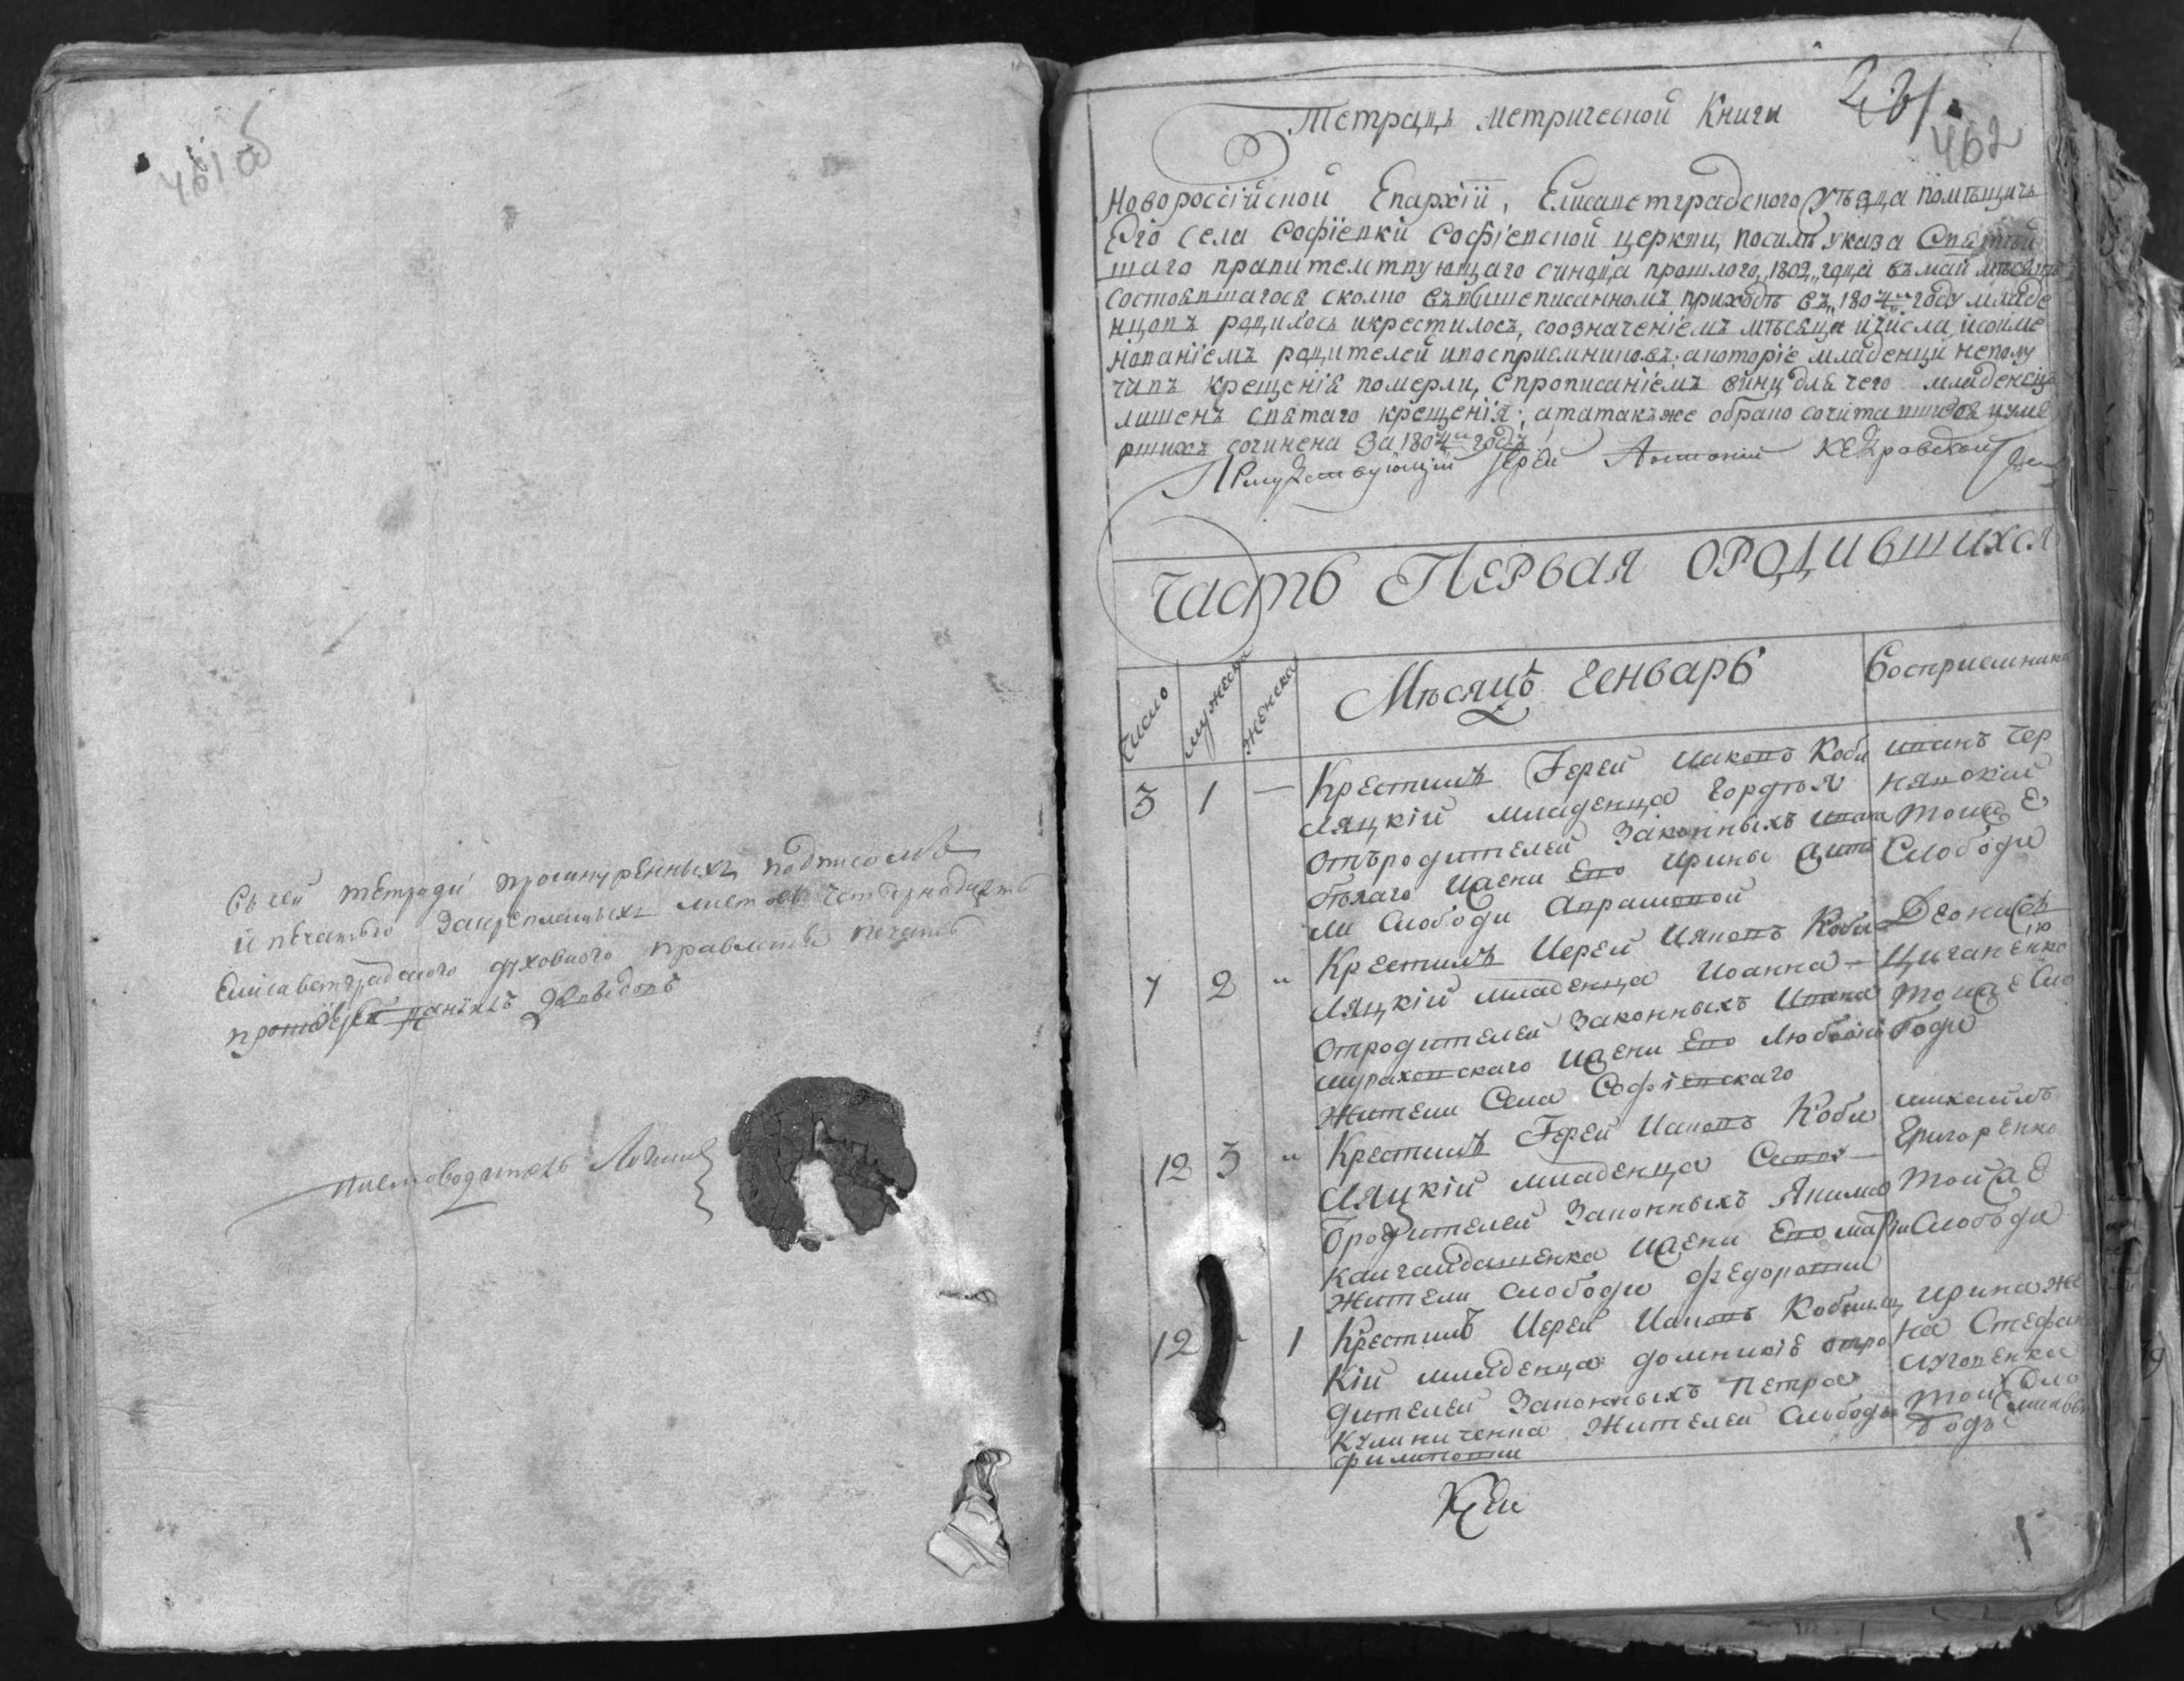 461 об
Въ сей тетради прошнуренныхъ подписомъ
и печатью закрепленныхъ листовъ четырнадцать
Елисаветградского духовного правленія печать
протоіерей Даніилъ
писмоводитель
Тетрадь метрической Книги
462
Новороссійской Епархіи, Елисаветградского уѣзда помѣщичь
его села Софіевки Софіевской церкви, посилѣ указа Святѣй
шаго правителствующаго синода прошлого, 1802, года въ май мѣсяцѣ
состоявшагося сколко въвышеписанномъ приходѣ въ, 1804м году младе
нцовъ родилось икрестилось, соозначеніемъ мѣсяца ичисла, исоиме
нованіемъ родителей ивосприемниковъ; акоторіе младенци неполу
чивъ крещенія померли, спрописаніемъ вини, для чего младенецъ
лишенъ святаго крещенія; атакъже обрано сочитавшихся иуме
ршихъ сочинена За 1804й годъ
Іерей Антоній Кедровскій
Часть Первая ородившихся
Число
мужеска
женска
Мѣсяцъ Генварь
Восприемники
3 1 — Крестилъ Іерей Иаковъ Коби
ляцкій младенца Гордѣя
отъродителей Законныхъ Ивана
Бѣлаго Ижени Его Ирини жите
ли Слободи
Иванъ Чер
нявский
тоижъ
Слободи
7 2 " Крестилъ Иерей Иаковъ Коби
ляцкій младенца Иоанна —
Отродителей Законныхъ Ивана
Ижени Его Любови
Жители Села Софіевскаго
Деонисѣ
Циганенко
тоижъ Сло
боди
12 3 " Крестилъ Іерей Иаковъ Коби
ляцкій младенца
Oродителей Законныхъ Якима
Ижени Его Маріи
Жители слободи Федоровки
михаилъ
Григоренко
тоижъ
Слободи
12 1 Крестилъ Иерей Иаковъ Кобиляц
Кій младенца Домникіе отро
дителей Законныхъ Петра
Кулиниченка Жителей Слободи
филиповки
Ирина же
на Стефана
тоижъ Сло
боди
1